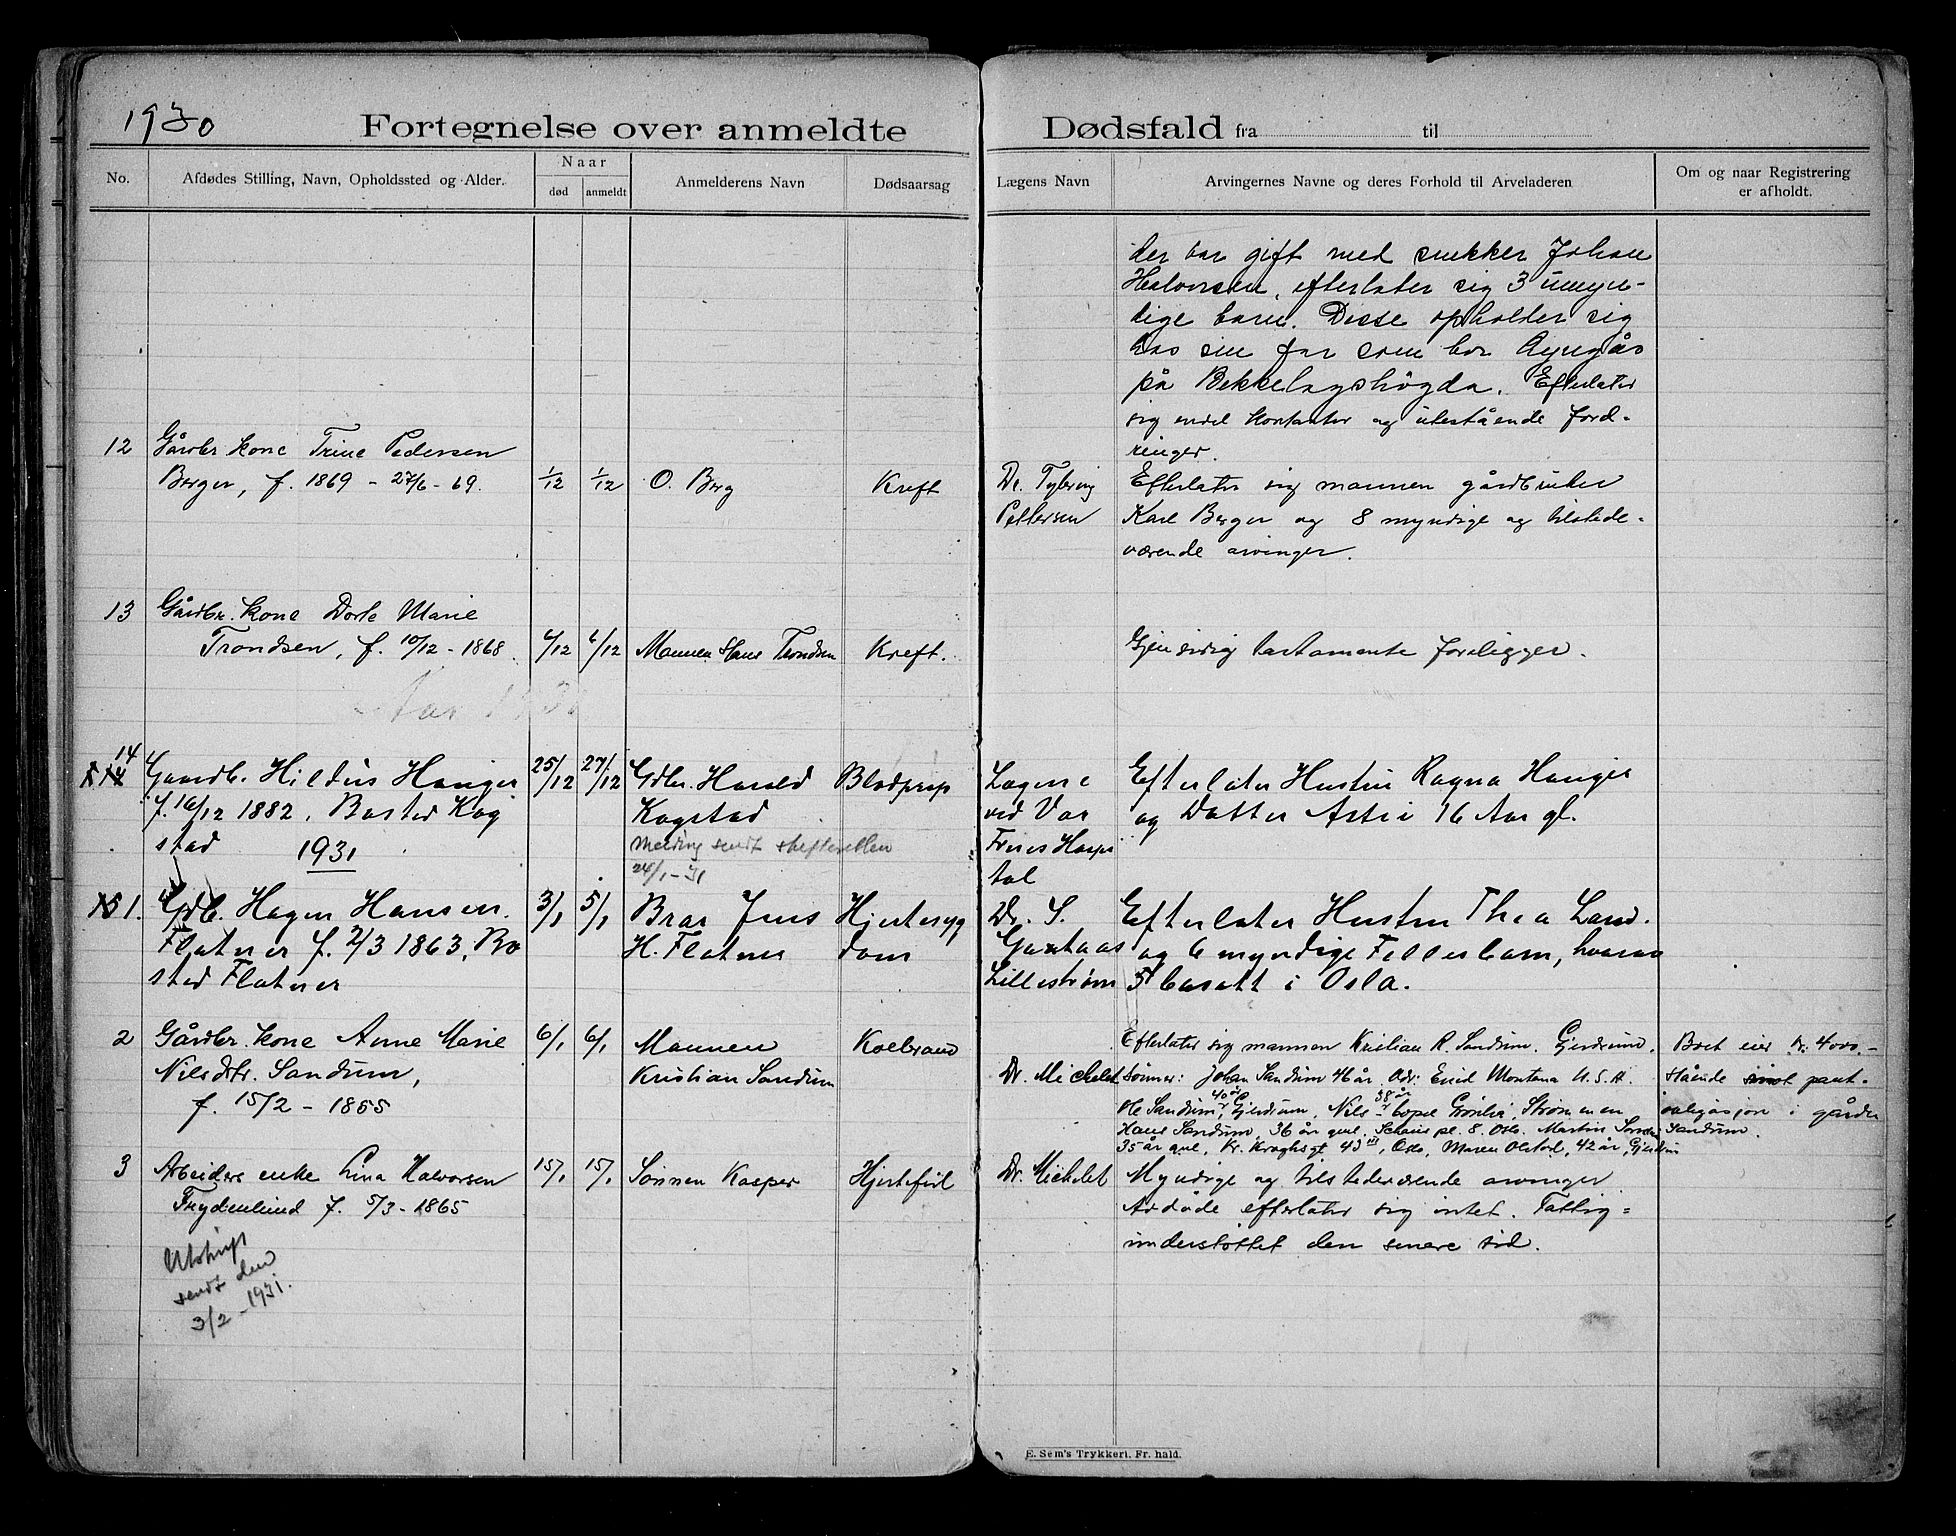 1930
Fortegnelse over anmeldte Dødsfald fra til
No.
Afdødes Stilling, Navn, Opholdssted og Alder.
Naar
død
anmeldt
Anmelderens Navn
Dødsaarsag
Lægens Navn
Arvingernes Navne og deres Forhold til Arveladeren
Om og naar Registrering
er afholdt.
der var gift med snekker Johan
Halvorsen, efterlater sig 3 umyn-
dige barn. Disse opholder sig
hos sin far som bor
på Bekkelagshøgda. Efterlater
sig endel kontanter og utestående ford-
ringer.
12 Gårdbr. kone Trine Pedersen
Berger, f. 1869 - 27/6 - 69. 1/12 1/12 O. Berg Kreft Dr. Pettersen
Efterlater sig mannen gårdbruker
Karl Berger og 8 myndige og tilstede-
værende arvinger.
13 Gårdbr. kone Dorte Marie
Trondsen, f. 10/12 - 1868 6/12 6/12 Mannen Hans Trondsen Kreft.
Gjensidig testamente foreligger.
Aar
14 Gaardb. Hildus Hauger 25/12 27/12 Gdbr. Harald Blodprop
f. 16/12 1882, Bosted Kog
stad
Kogstad
Melding sendt skifteretten
24/1-31
Lægene
ved Vor
Frues Hospi
tal
Efterlater Hustru Ragna Hauger
og Datter Astri 16 Aar gl.
1931
1. Gdb. Hagen Hansen 3/1 5/1 Bror Jens Hjertesyg
Flatner f. 2/3 1863, Bo H. Flatner dom
sted Flatner
Dr. S.
Lillestrøm
Efterlater Hustru Thea Land.
og 6 myndige Fellesbarn, hvorav
5 bosatt i Oslo.
2 Gårdbr. kone Anne Marie 6/1 6/1 Mannen Koldbrand
Nilsdtr. Sandum, Kristian Sandum
f. 15/2 - 1855
Dr. Michelet
Efterlater sig mannen Kristian R. Sandum. Gjerdrum.
Sønner: Johan Sandum 46 år. Adr: Enid Montana U.S.A.
40 år 38 år
Ole Sandum, Gjerdrum, Nils Strømmen
Hans Sandum, 36 år gml. Schous pl. 8. Oslo. Martin Sandum
35 år gml, Kr. Kroghsgt 43 III, Oslo, Maren Olstad, 42 år, Gjerdrum
Boet eier kr. 4000.-
stående mot pant-
obligasjon i gården
Sandum.
3 Arbeiders enke Lina Halvorsen 15/1 15/1 Sønnen Kasper Hjertefeil Dr. Michelet
Frydenlund f. 5/3 - 1865
Myndige og tilstedeværende arvinger.
Avdøde efterlater sig intet. Fattig-
understøttet den senere tid.
Utskrift
sendt den
3/2 - 1931.
E. Sem's Trykkeri. Fr. hald.